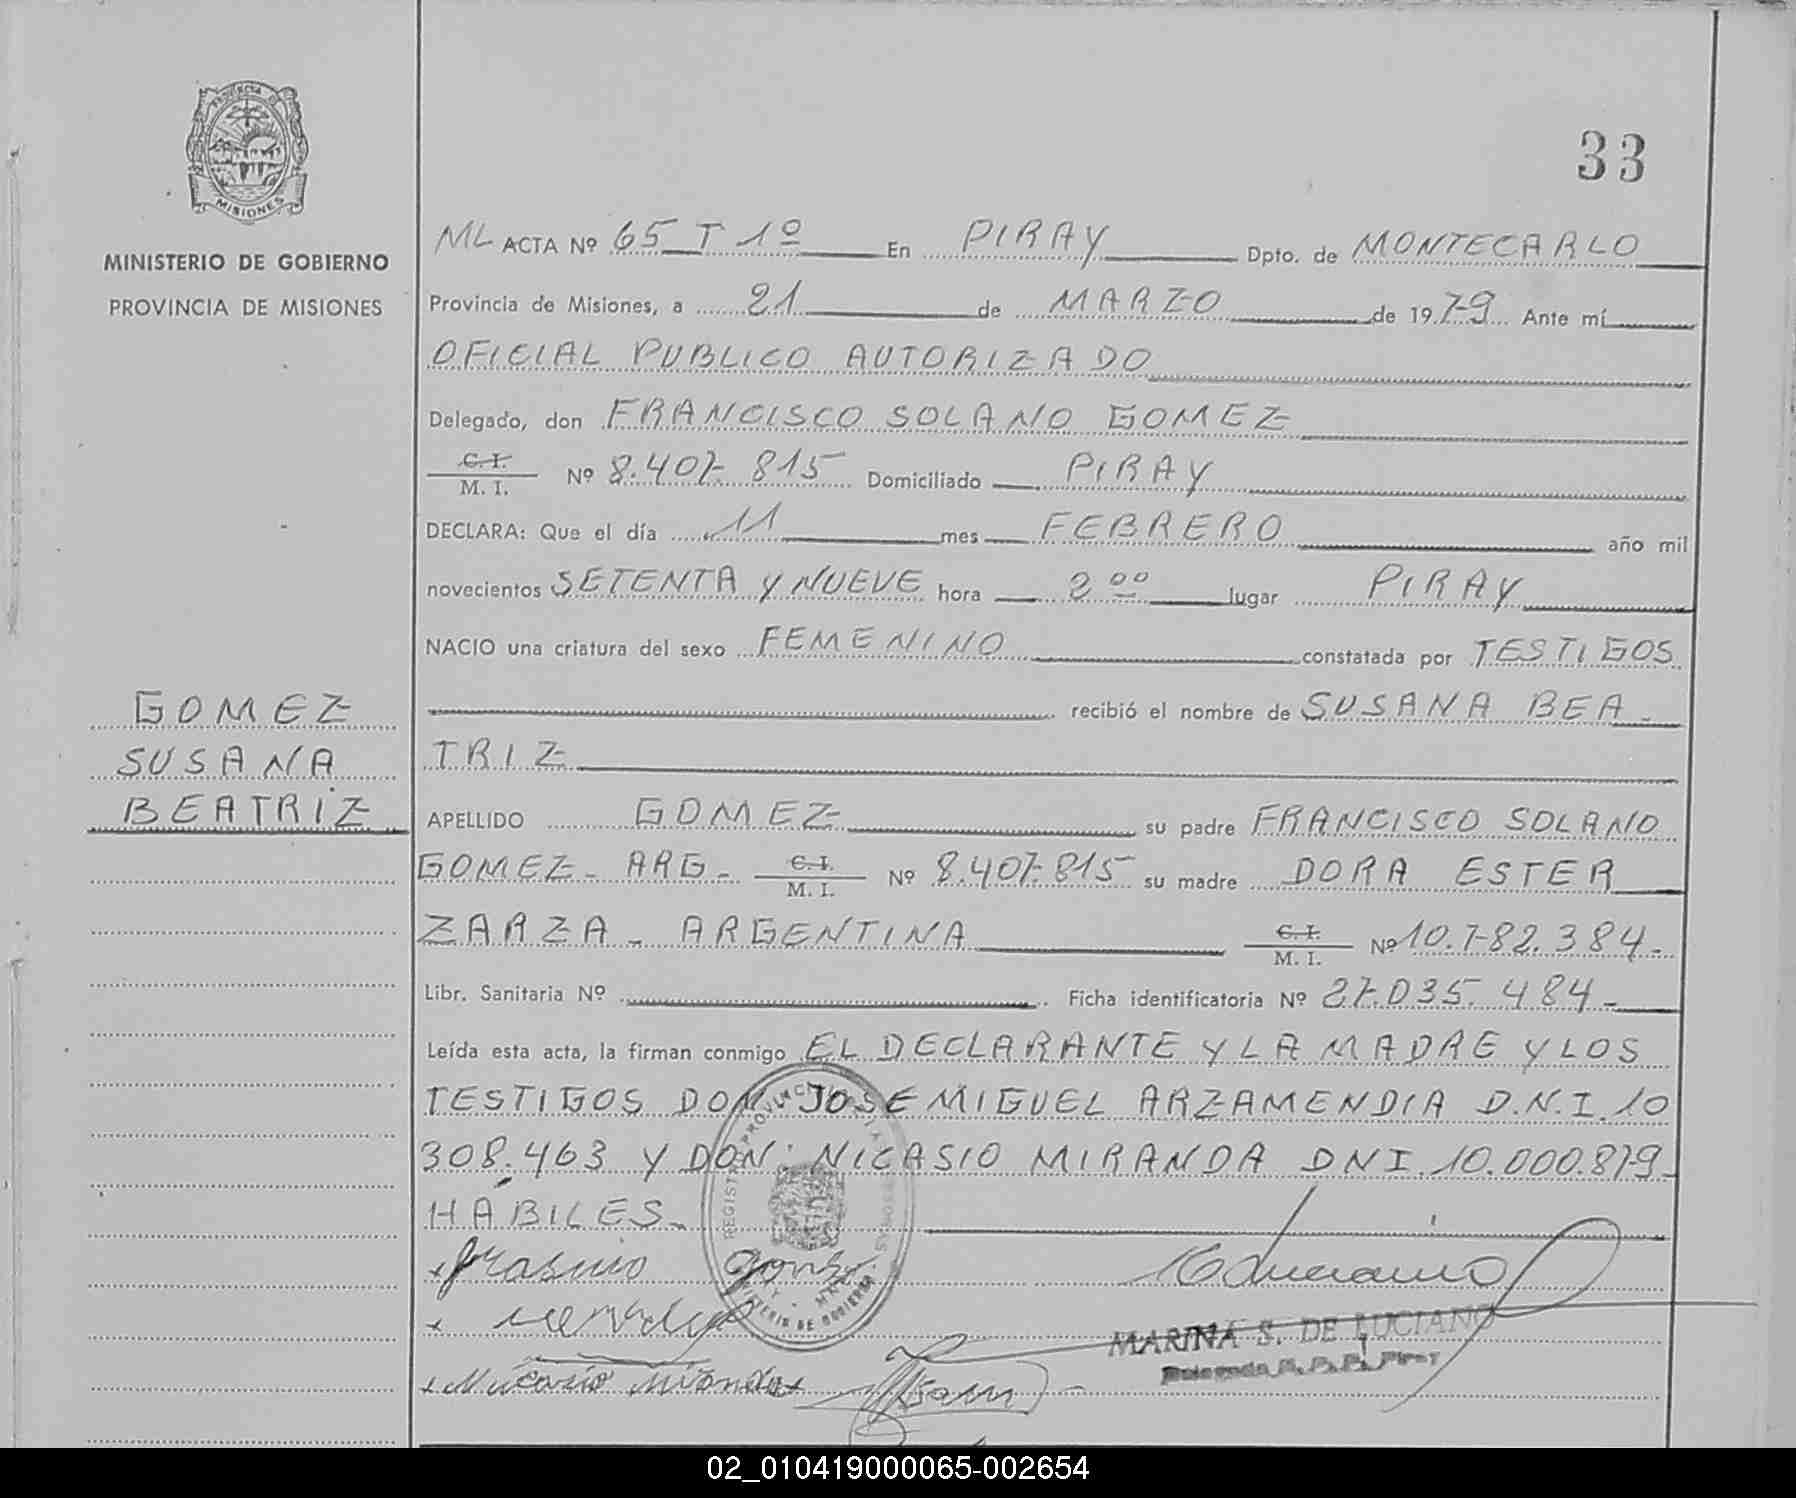 33
PROVINCIA DE
MISIONES
MINISTERIO DE GOBIERNO
PROVINCIA DE MISIONES
ML ACTA Nº 65 T 1º En PIRAY Dpto. de MONTECARLO
Provincia de Misiones, a 21 de MARZO de 1979 Ante mí
OFICIAL PUBLICO AUTORIZADO
Delegado, don FRANCISCO SOLANO GOMEZ
C. I.
M. I. Nº 8.407.815 Domiciliado PIRAY
DECLARA: Que el día 11 mes FEBRERO año mil
novecientos SETENTA Y NUEVE hora 2 00 lugar PIRAY
NACIO una criatura del sexo FEMENINO constatada por TESTIGOS
recibió el nombre de SUSANA BEA-
TRIZ
GOMEZ
SUSANA
BEATRIZ
APELLIDO GOMEZ su padre FRANCISCO SOLANO
GOMEZ - ARG - C. I.
M. I. Nº 8.407.815 su madre DORA ESTER
ZARZA - ARGENTINA C. I.
M. I. Nº 10.782.384-
Libr. Sanitaria Nº Ficha identificatoria Nº 27.035.484-
Leída esta acta, la firman conmigo EL DECLARANTE Y LA MADRE Y LOS
TESTIGOS DON JOSE MIGUEL ARZAMENDIA D.N.I. 10
308.463 Y DON NICASIO MIRANDA DNI. 10.000.879-
HÁBILES-
Nicasio Miranda
MARINA S. DE LUCIANO
02_010419000065-002654